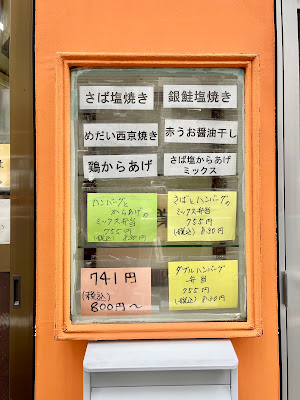 さば塩焼き
銀鮭塩焼き
めだい西京焼き
赤うお醤油干し
鶏からあげ
さば塩からあげ
ミックス
ハンバーグと
からあげの
ミックス弁当
755円
(税込) 830円
さばとハンバーグの
ミックス弁当
755円
(税込) 830円
741円
(税込)
800円~
ダブルハンバーグ
弁当
755円
(税込) 830円